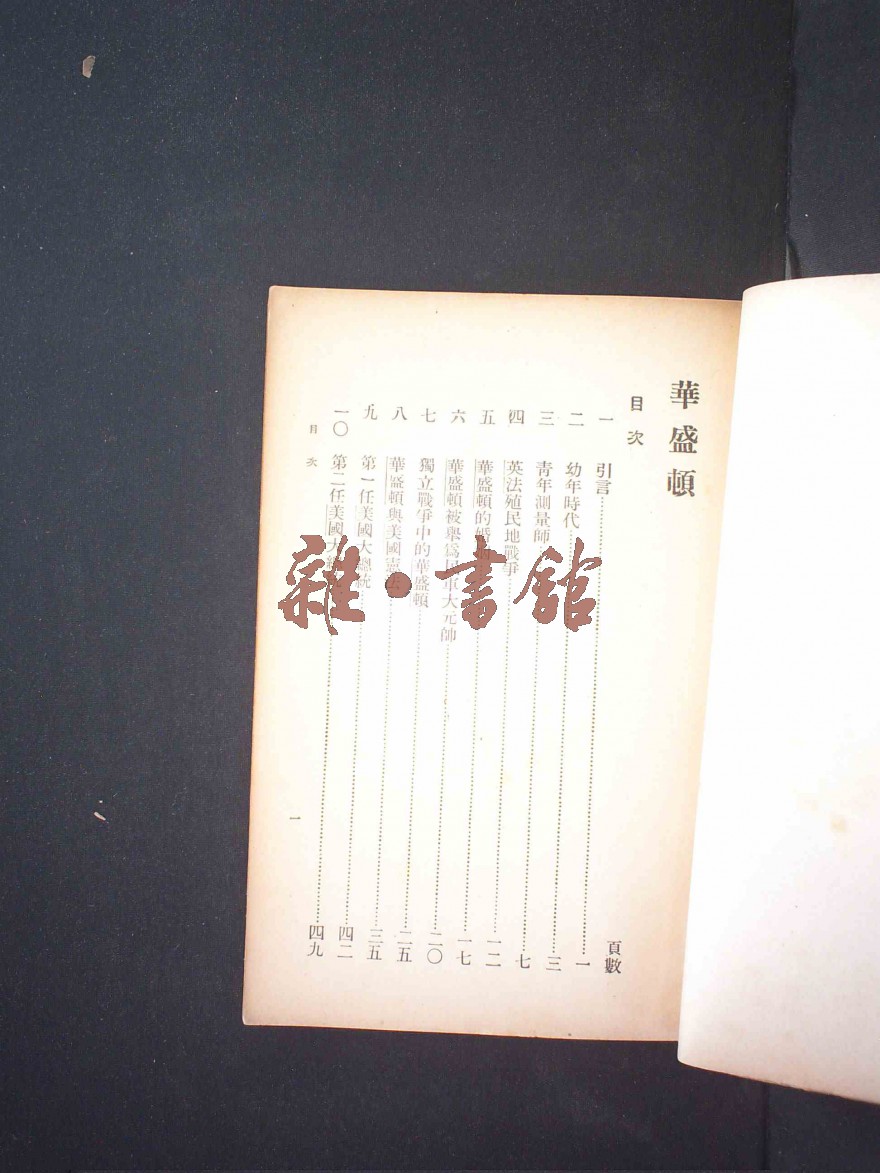 華盛頓
目次
頁數
一 引言……一
二 幼年時代……三
三 青年測量師……七
四 英法殖民地戰爭……一二
五 華盛頓的婚……一七
六 華盛頓被舉爲軍大元帥……二〇
七 獨立戰爭中的華盛頓……二五
八 華盛頓與美國憲……三五
九 第一任美國大總統……四二
一〇 第二任美國大……四九
目次
一
雜·書館